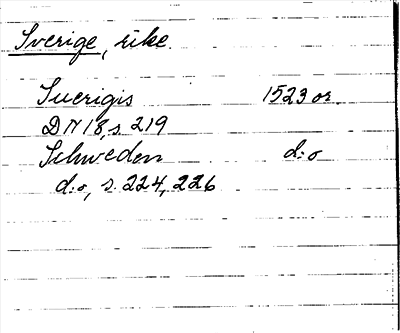 Sverige, rike.
Suerigis 1523 or.
DN 18, s. 219
Schweden d:o
d:o, s. 224, 226